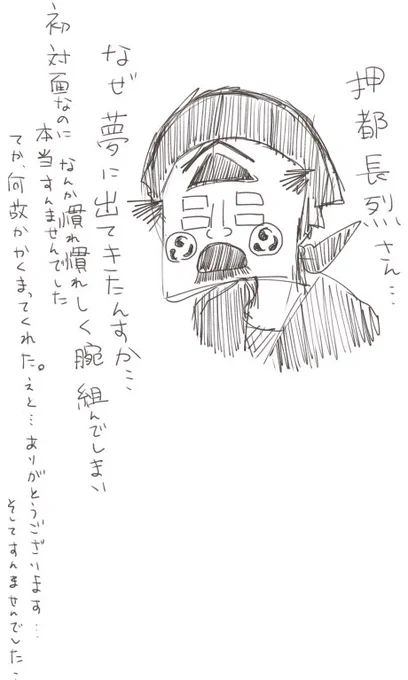 押都長烈さん…
なぜ夢に出てキたんすか…
初対面なのに なんか慣れ慣れしく腕組んでしまい
本当すんませんでした
てか、何故かかくまってくれた。えと…ありがとうございます…
そしてすんませんでした…